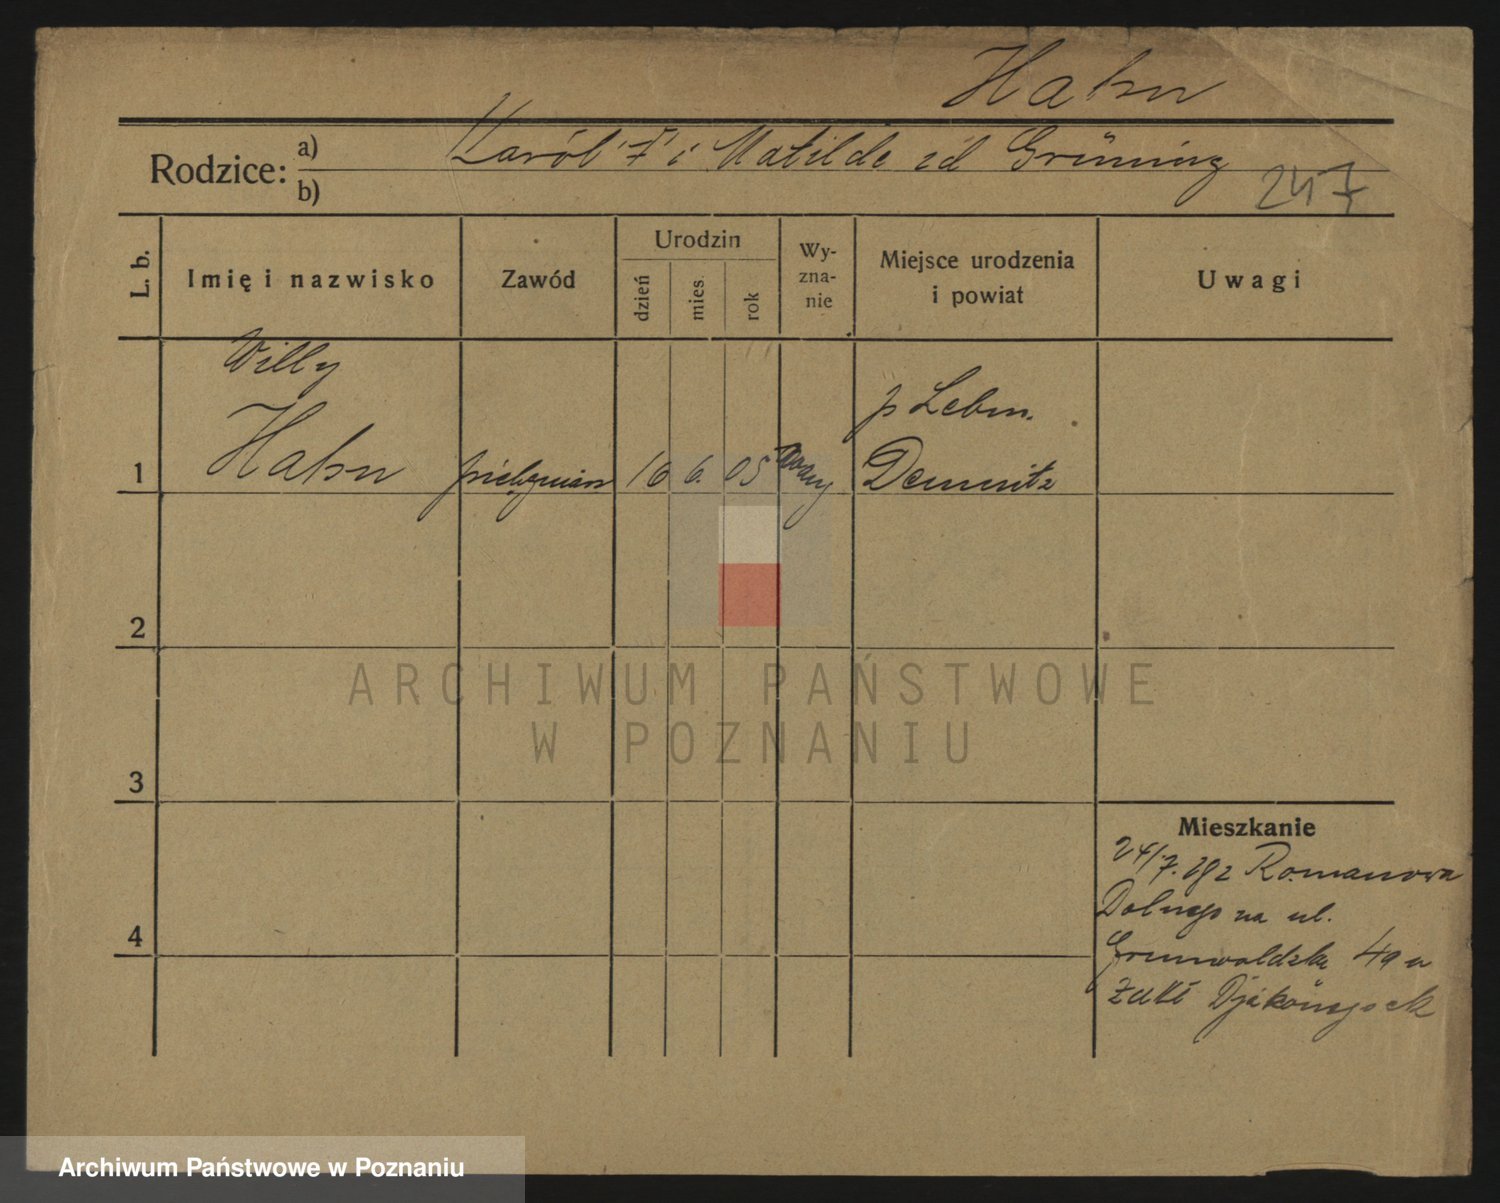 Hahn
Rodzice: a) Karól i Matilde zd Grüning
b)
247
L. b.
Imię i nazwisko
Zawód
Urodzin
dzień
mies.
rok
Wy-
zna-
nie
Miejsce urodzenia
i powiat
Uwagi
Willy
Hahn
1
pielęgniarz
16
6.
05
ewang
p Lebm.
Demnitz
2
3
4
Mieszkanie
24/7. 28 z Romanowa
Dolnego na ul.
Grunwaldzka 49 u
ARCHIWUM PAŃSTWOWE
W POZNANIU
Archiwum Państwowe w Poznaniu